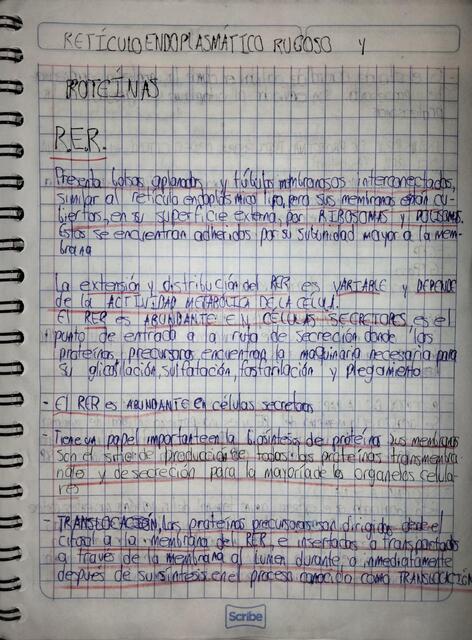 RETÍCULO ENDOPLASMÁTICO RUGOSO Y
PROTEÍNAS
R.E.R.
Presenta bolsas aplanadas y túbulos membranosos interconectados,
similar al retículo endoplásmico liso, pero sus membranas están cu-
biertas, en su superficie externa, por RIBOSOMAS y POLISOMAS.
Éstos se encuentran adheridos por su subunidad mayor a la mem-
brana
La extensión y distribución del RER es VARIABLE y DEPENDE
de la ACTIVIDAD METABÓLICA DE LA CÉLULA.
El RER es ABUNDANTE EN CÉLULAS SECRETORES es el
punto de entrada a la ruta de secreción donde las
proteínas precursoras encuentran la maquinaria necesaria para
su glicosilación, sulfatación, fosforilación y plegamiento
- El RER es ABUNDANTE en células secretoras
- Tiene un papel importante en la biosíntesis de proteína sus membranas
son el sitio de producción de todas las proteínas transmembra
nales y de secreción para la mayoría de los organelos celula-
res
- TRANSLOCACIÓN, Las proteínas precursoras son dirigidas desde el
citosol a la membrana del RER e insertadas o transportadas
a través de la membrana al lumen durante, o inmediatamente
después de su síntesis, en el proceso conocido como TRANSLOCACIÓN
Scribe